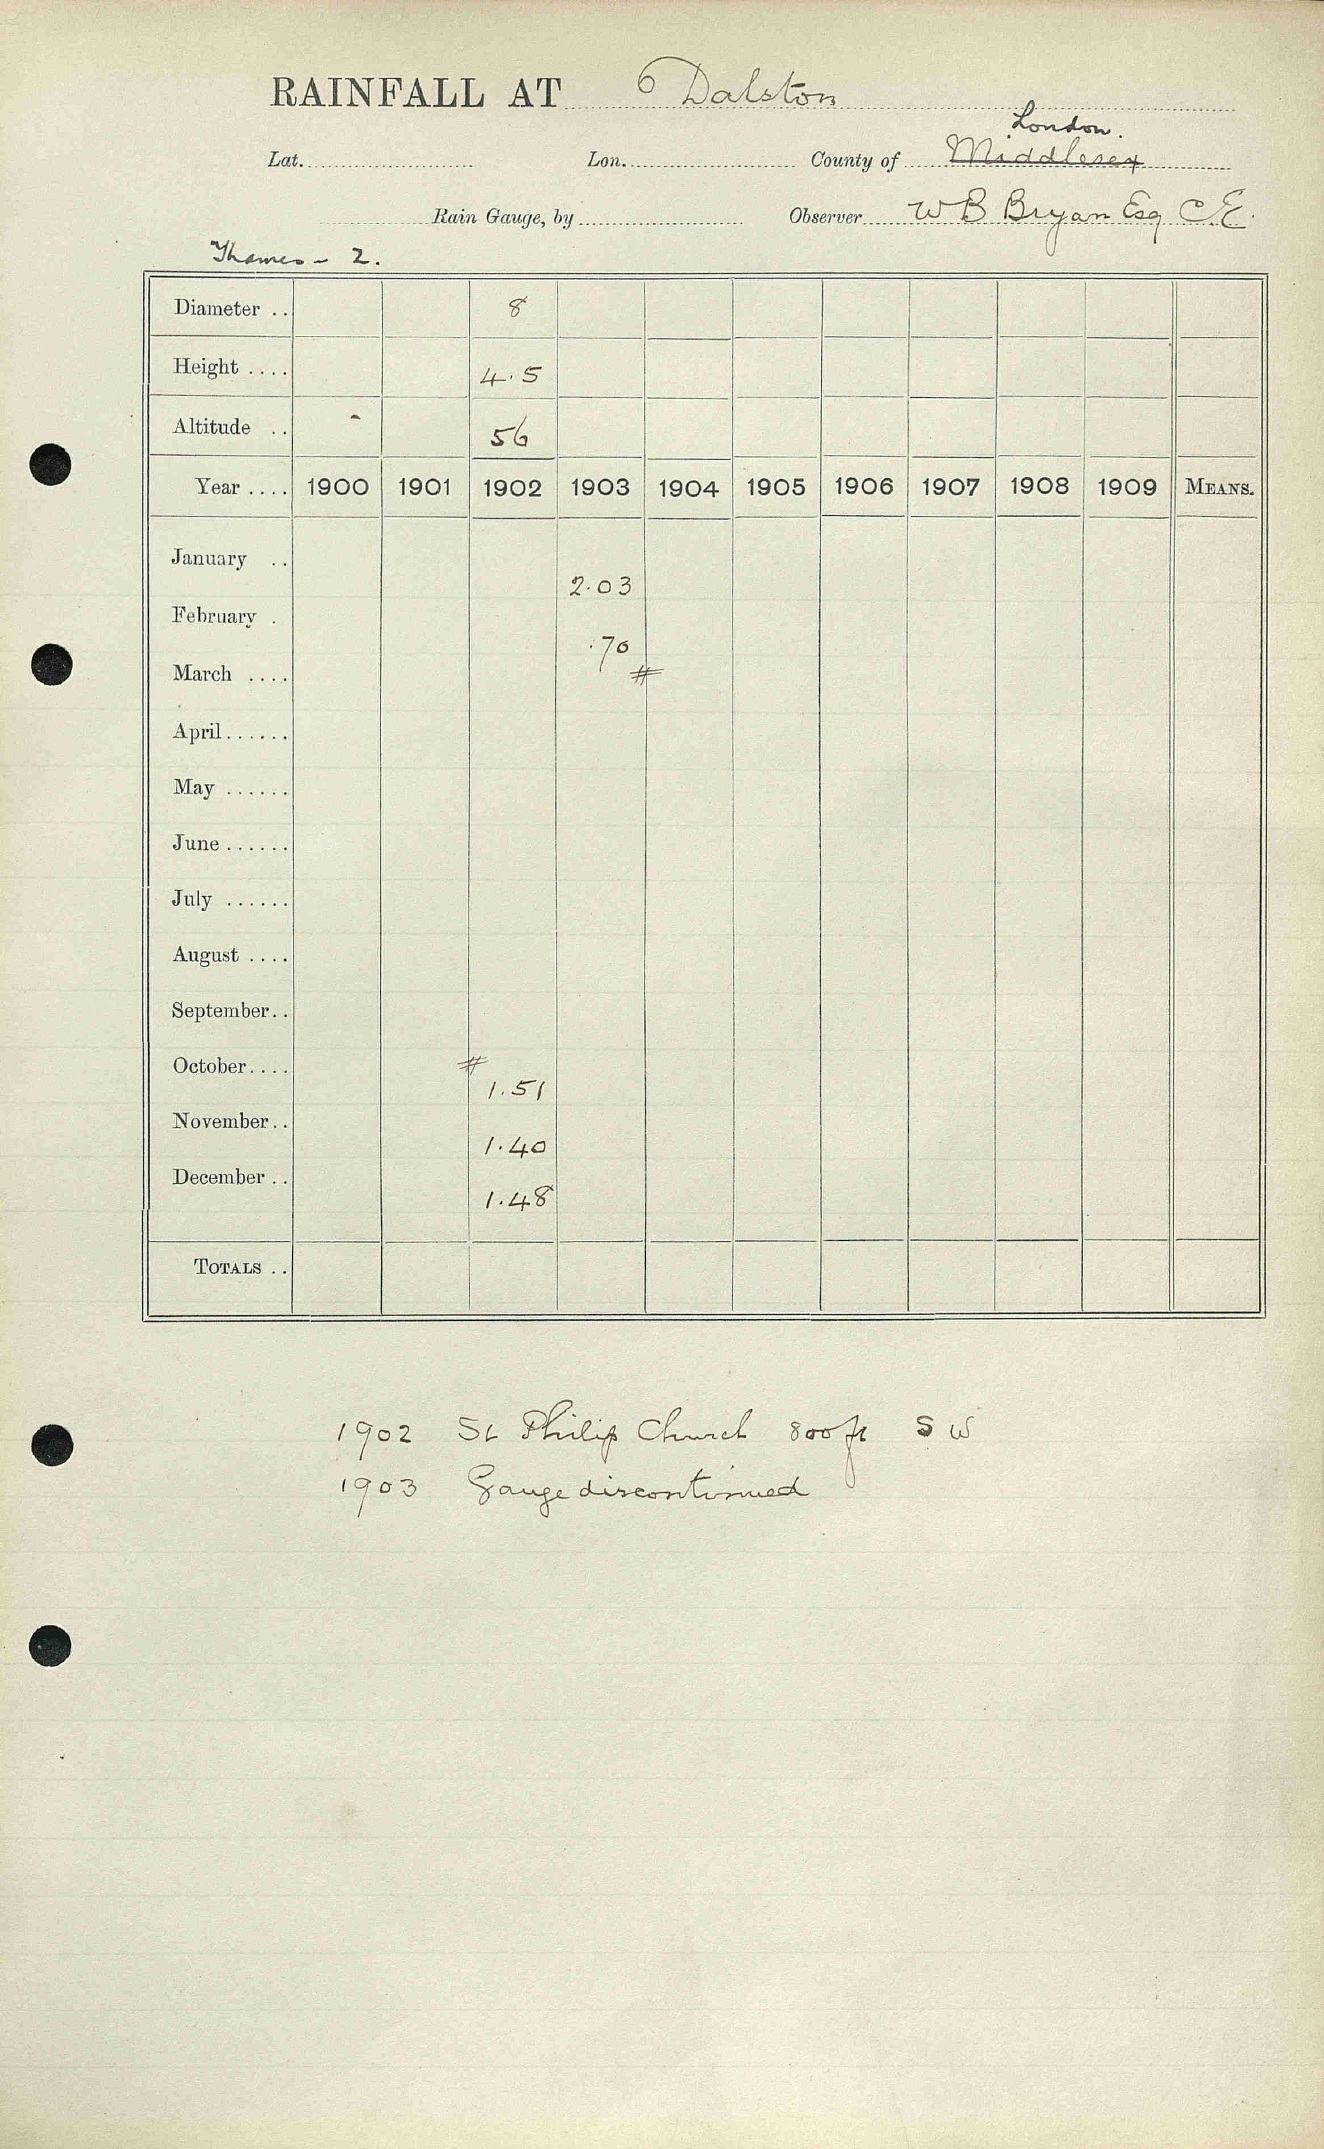 RAINFALL AT Dalston
London.
Lat. Lon. County of Middlesex
Rain Gauge, by Observer W B Bryan Esq C.E.
Thames - 2.
Diameter .. 8
Height .... 4.5
Altitude .. 56
Year .... 1900 1901 1902 1903 1904 1905 1906 1907 1908 1909 MEANS.
January ..
2.03
February .
.70
March .... #
April ......
May ......
June ......
July ......
August ....
September ..
October .... #
1.51
November ..
1.40
December ..
1.48
TOTALS ..
1902 St Philip Church 800 ft S W
1903 Gauge discontinued